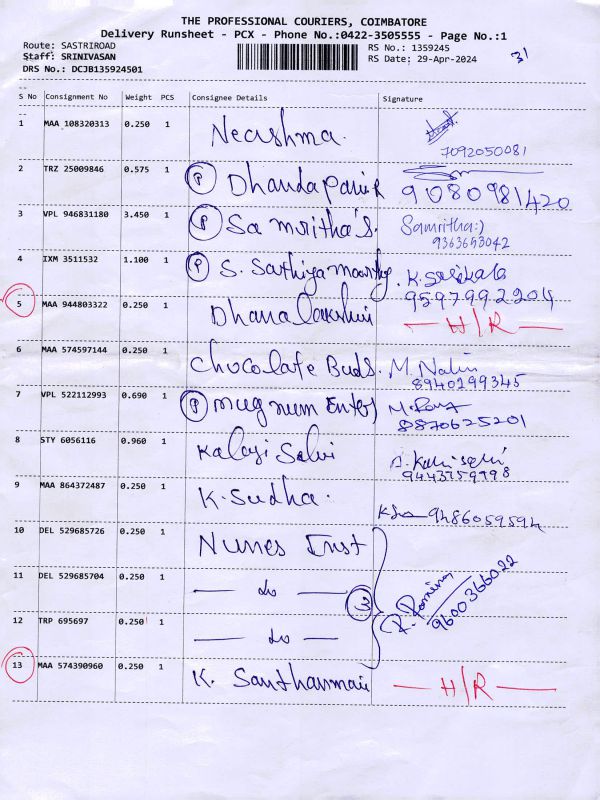 THE PROFESSIONAL COURIERS, COIMBATORE
Delivery Runsheet - PCX - Phone No.:0422-3505555 - Page No.:1
Route: SASTRIROAD RS No.: 1359245
Staff: SRINIVASAN RS Date: 29-Apr-2024 31
DRS No.: DCJB135924501
S No Consignment No Weight PCS Consignee Details Signature
1 MAA 108320313 0.250 1 Neashma.
7092050081
2 TRZ 25009846 0.575 1 P Dhandapani R 9080981420
3 VPL 946831180 3.450 1 P Samritha's. Samritha:)
9363693042
4 IXM 3511532 1.100 1 P S. Sathiyamoorthy. K. Sasikala
9597992204
5 MAA 944803322 0.250 1 Dhanalakshmi — H/R —
6 MAA 574597144 0.250 1 Chocolate Buds. M. Nalin
8940299345
7 VPL 522112993 0.690 1 P mugnum Enter M.
8870625201
8 STY 6056116 0.960 1 Kalai Selvi
9443759798
9 MAA 864372487 0.250 1 K. Sudha. 9486059594
10 DEL 529685726 0.250 1 Nunes Inst
11 DEL 529685704 0.250 1 — do — 3 9600366022
12 TRP 695697 0.250 1 — do —
13 MAA 574390960 0.250 1 K. Santhanmari — H/R —